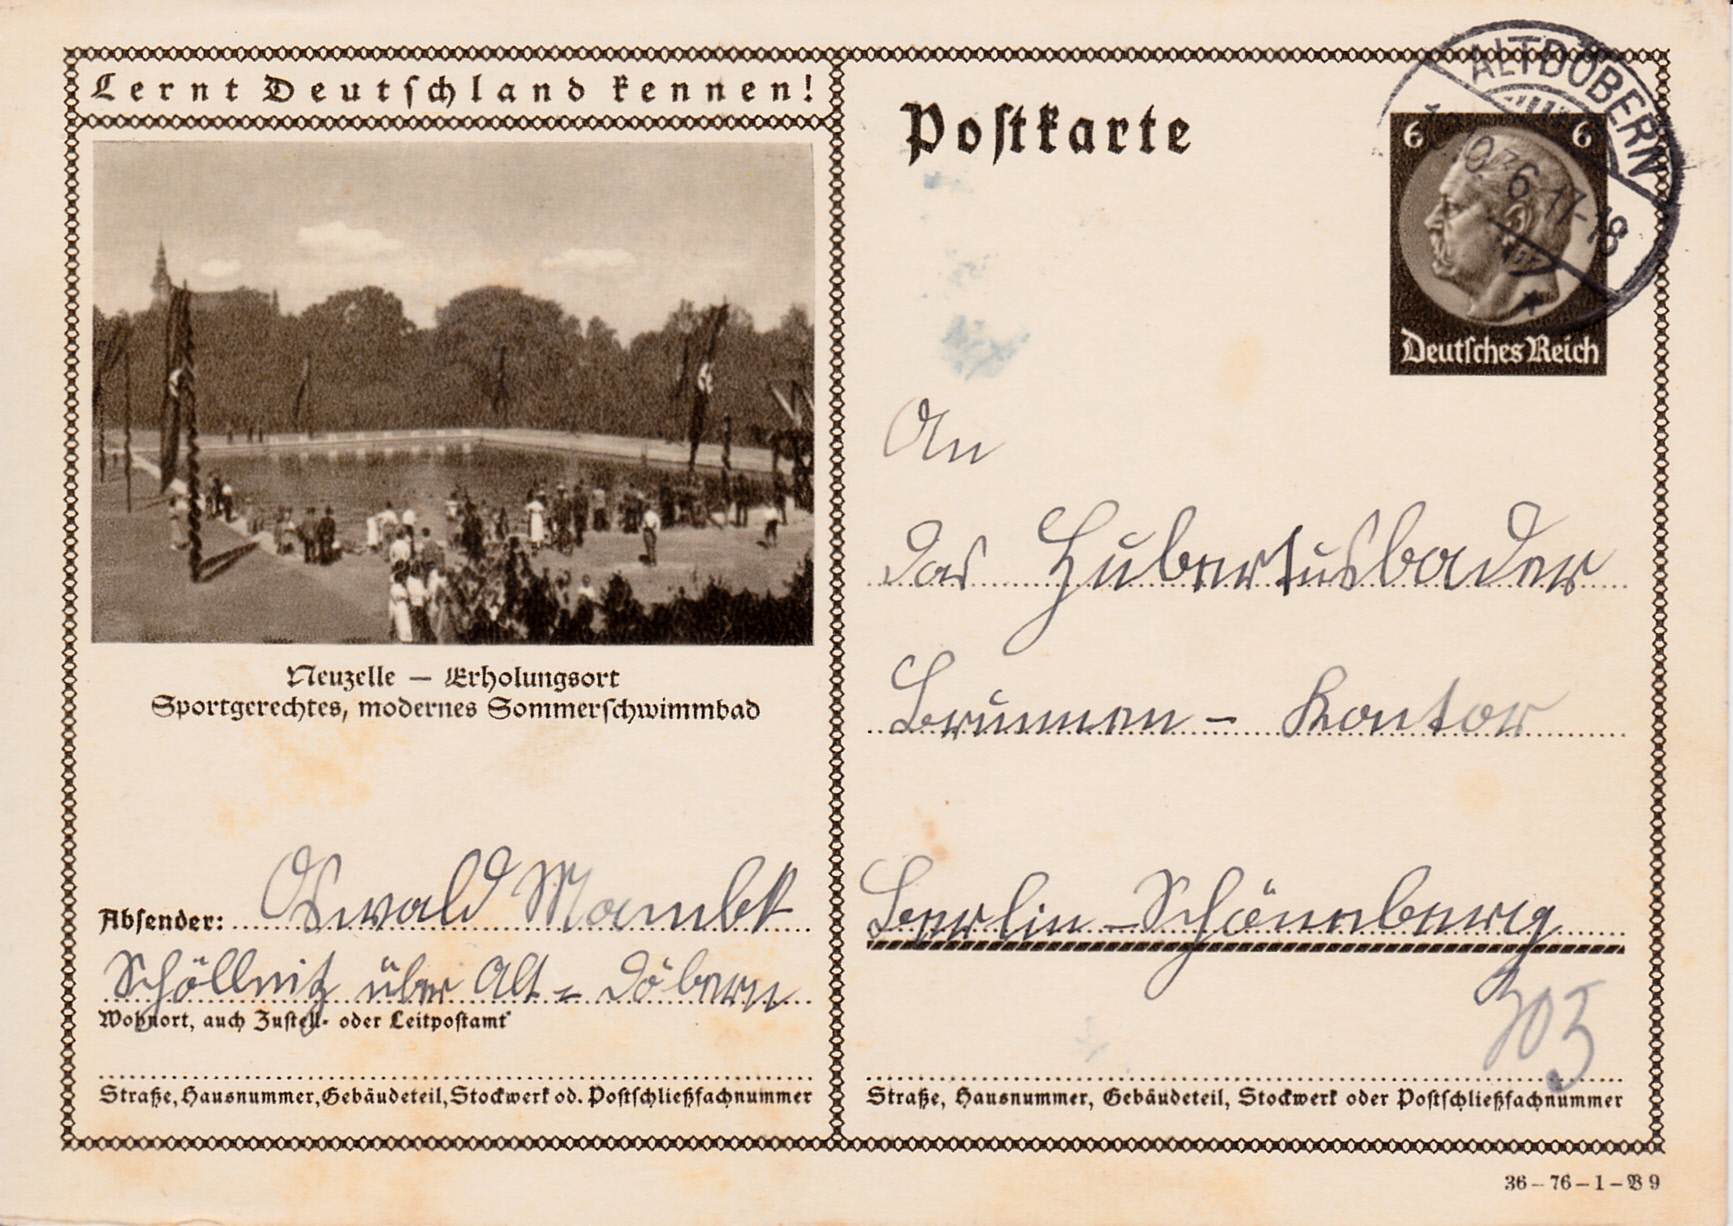 Lernt Deutschland kennen!
Neuzelle – Erholungsort
Sportgerechtes, modernes Sommerschwimmbad
Absender: Oswald
Schöllnitz über Alt-Döbern
Wohnort, auch Zustell- oder Leitpostamt
Straße, Hausnummer, Gebäudeteil, Stockwerk od. Postschließfachnummer
Postkarte
ALTDÖBERN
17-18
6 6
Deutsches Reich
An
das Hubertusbader
Brunnen - Kontor
Berlin-Schöneberg
Straße, Hausnummer, Gebäudeteil, Stockwerk oder Postschließfachnummer
36 – 76 – 1 – B 9